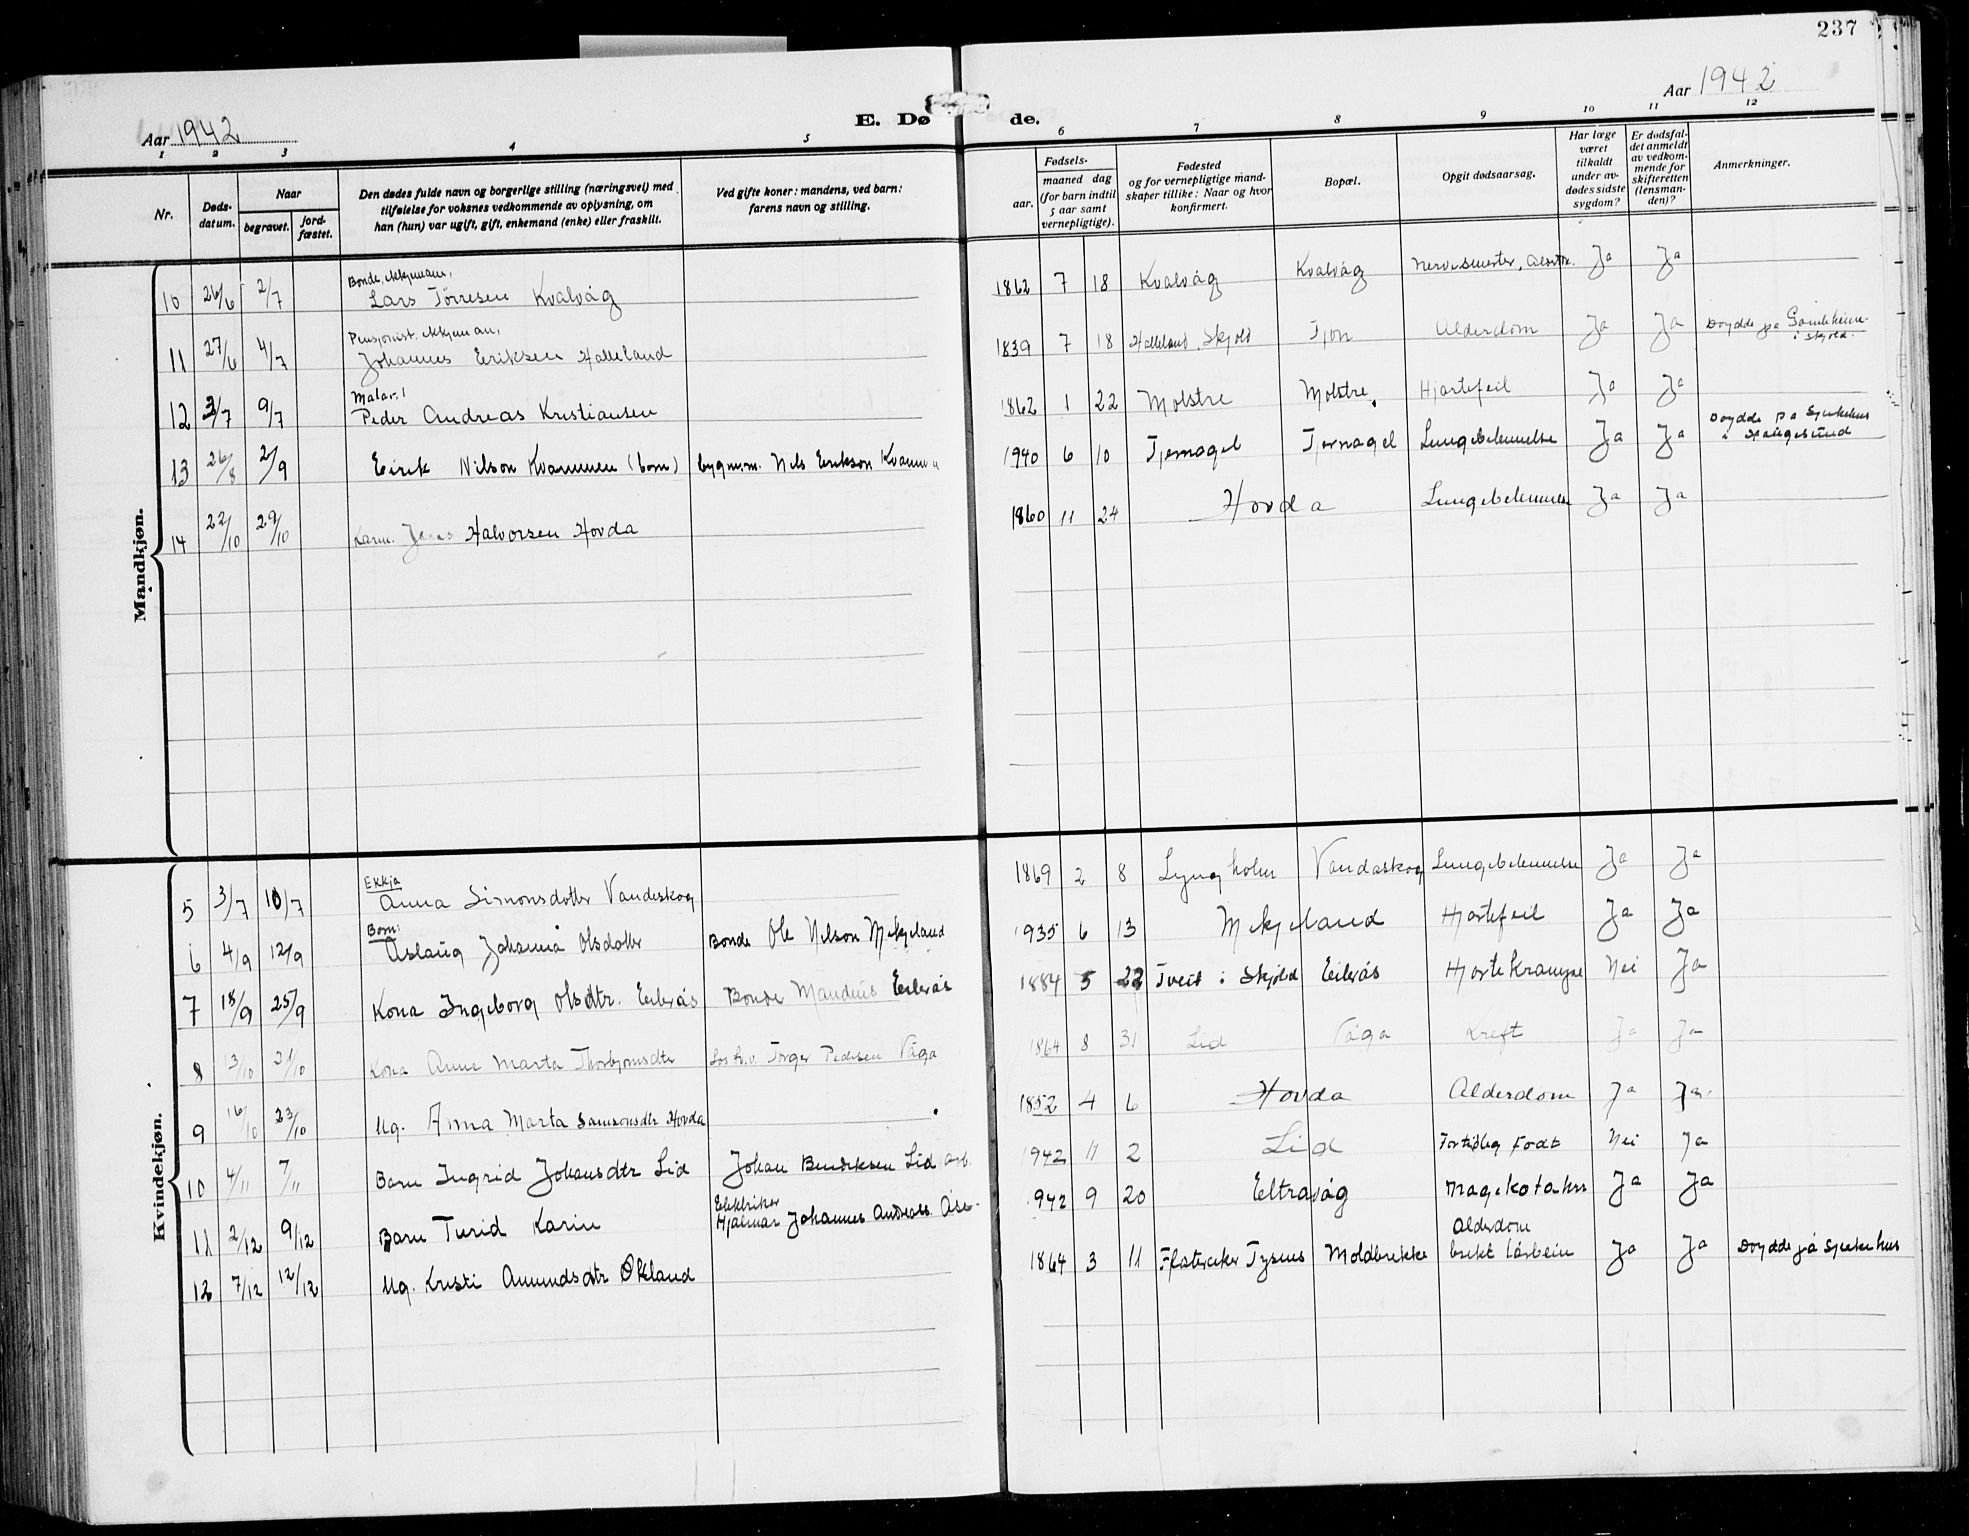 237
Aar 1942
E. Døde.
Aar 1942
1 2 3 4 5 6 7 8 9 10 11 12
Nr.
Døds-datum.
Naar
begravet.
jord-fæstet.
Den dødes fulde navn og borgerlige stilling (næringsvei) med
tilføielse for voksnes vedkommende av oplysning, om
han (hun) var ugift, gift, enkemand (enke) eller fraskilt.
Ved gifte koner: mandens, ved barn:
farens navn og stilling.
Fødsels-
aar.
maaned dag
(for barn indtil
5 aar samt
vernepligtige).
Fødested
og for vernepligtige mand-
skaper tillike: Naar og hvor
konfirmert.
Bopæl.
Opgit dødsaarsag.
Har læge
været
tilkaldt
under av-
dødes sidste
sygdom?
Er dødsfal-
det anmeldt
av vedkom-
mende for
skifteretten
(lensman-
den)?
Anmerkninger.
Mandkjøn.
Bonde, ekkjemann,
10 26/6 2/7 Lars Tørresen Kvalvåg 1862 7 18 Kvalvåg Kvalvåg Ja Ja
Pensjonist. ekkjeman,
11 27/6 4/7 Johannes Eriksen Halleland 1839 7 18 Halleland, Skjold Tjøn Alderdom Ja Ja Døydde på Gamleheime i Skjold.
Malar,
12 3/7 9/7 Peder Andreas Kristiansen 1862 1 22 Molstre Molstre Hjartefeil Ja Ja
13 26/8 2/9 Eirik Nilson Kvammen (born) bygnm. Nils Erikson Kvammen 1940 6 10 Tjernagel Tjernagel Lungebetennelse Ja Ja Døydde på Sjukehus i Haugesund
14 22/10 29/10 Karm. Jens Halvorsen Hovda 1860 11 24 Hovda Lungebetennelse Ja Ja
Kvindekjøn.
Ekkja
5 3/7 10/7 Anna Simonsdotter Vandaskog 1869 2 8 Lyngholm Vandaskog Lungebetennelse Ja Ja
Born:
6 4/9 12/9 Aslaug Johanna Olsdotter Bonde Ole Nilson Mekjeland 1935 6 13 Mekjeland Hjartefeil Ja Ja
7 18/9 25/9 Kona Ingeborg Olsdtr. Eilerås Bonde Maudius Eilerås 1884 5 22 Tveit i Skjold Eilerås Hjartekrampe Nei Ja
8 13/10 21/10 Kona Anne Marta Thorbjornsdtr Torger Pedersen Våga 1864 8 31 Lid Våga Kreft Ja Ja
9 16/10 23/10 Ug. Anna Marta Samsonsdtr Hovda 1852 4 6 Hovda Alderdom Ja Ja.
10 4/11 7/11 Barn Ingrid Johansdtr Lid Johan Bendiksen Lid arb. 1942 11 2 Lid Fortidleg Fodt Nei Ja
Elektriker
11 2/12 9/12 Barn Turid Karin Hjalmar Johannes Andreas Åse 1942 9 20 Eltravåg Magekatahr Ja Ja
12 7/12 12/12 Ug. Kristi Amundsdtr Økland 1864 3 11 Flateraker Tysnes Moldbrekke Alderdom brekt lårbein Ja Ja Døydde på Sjukehus